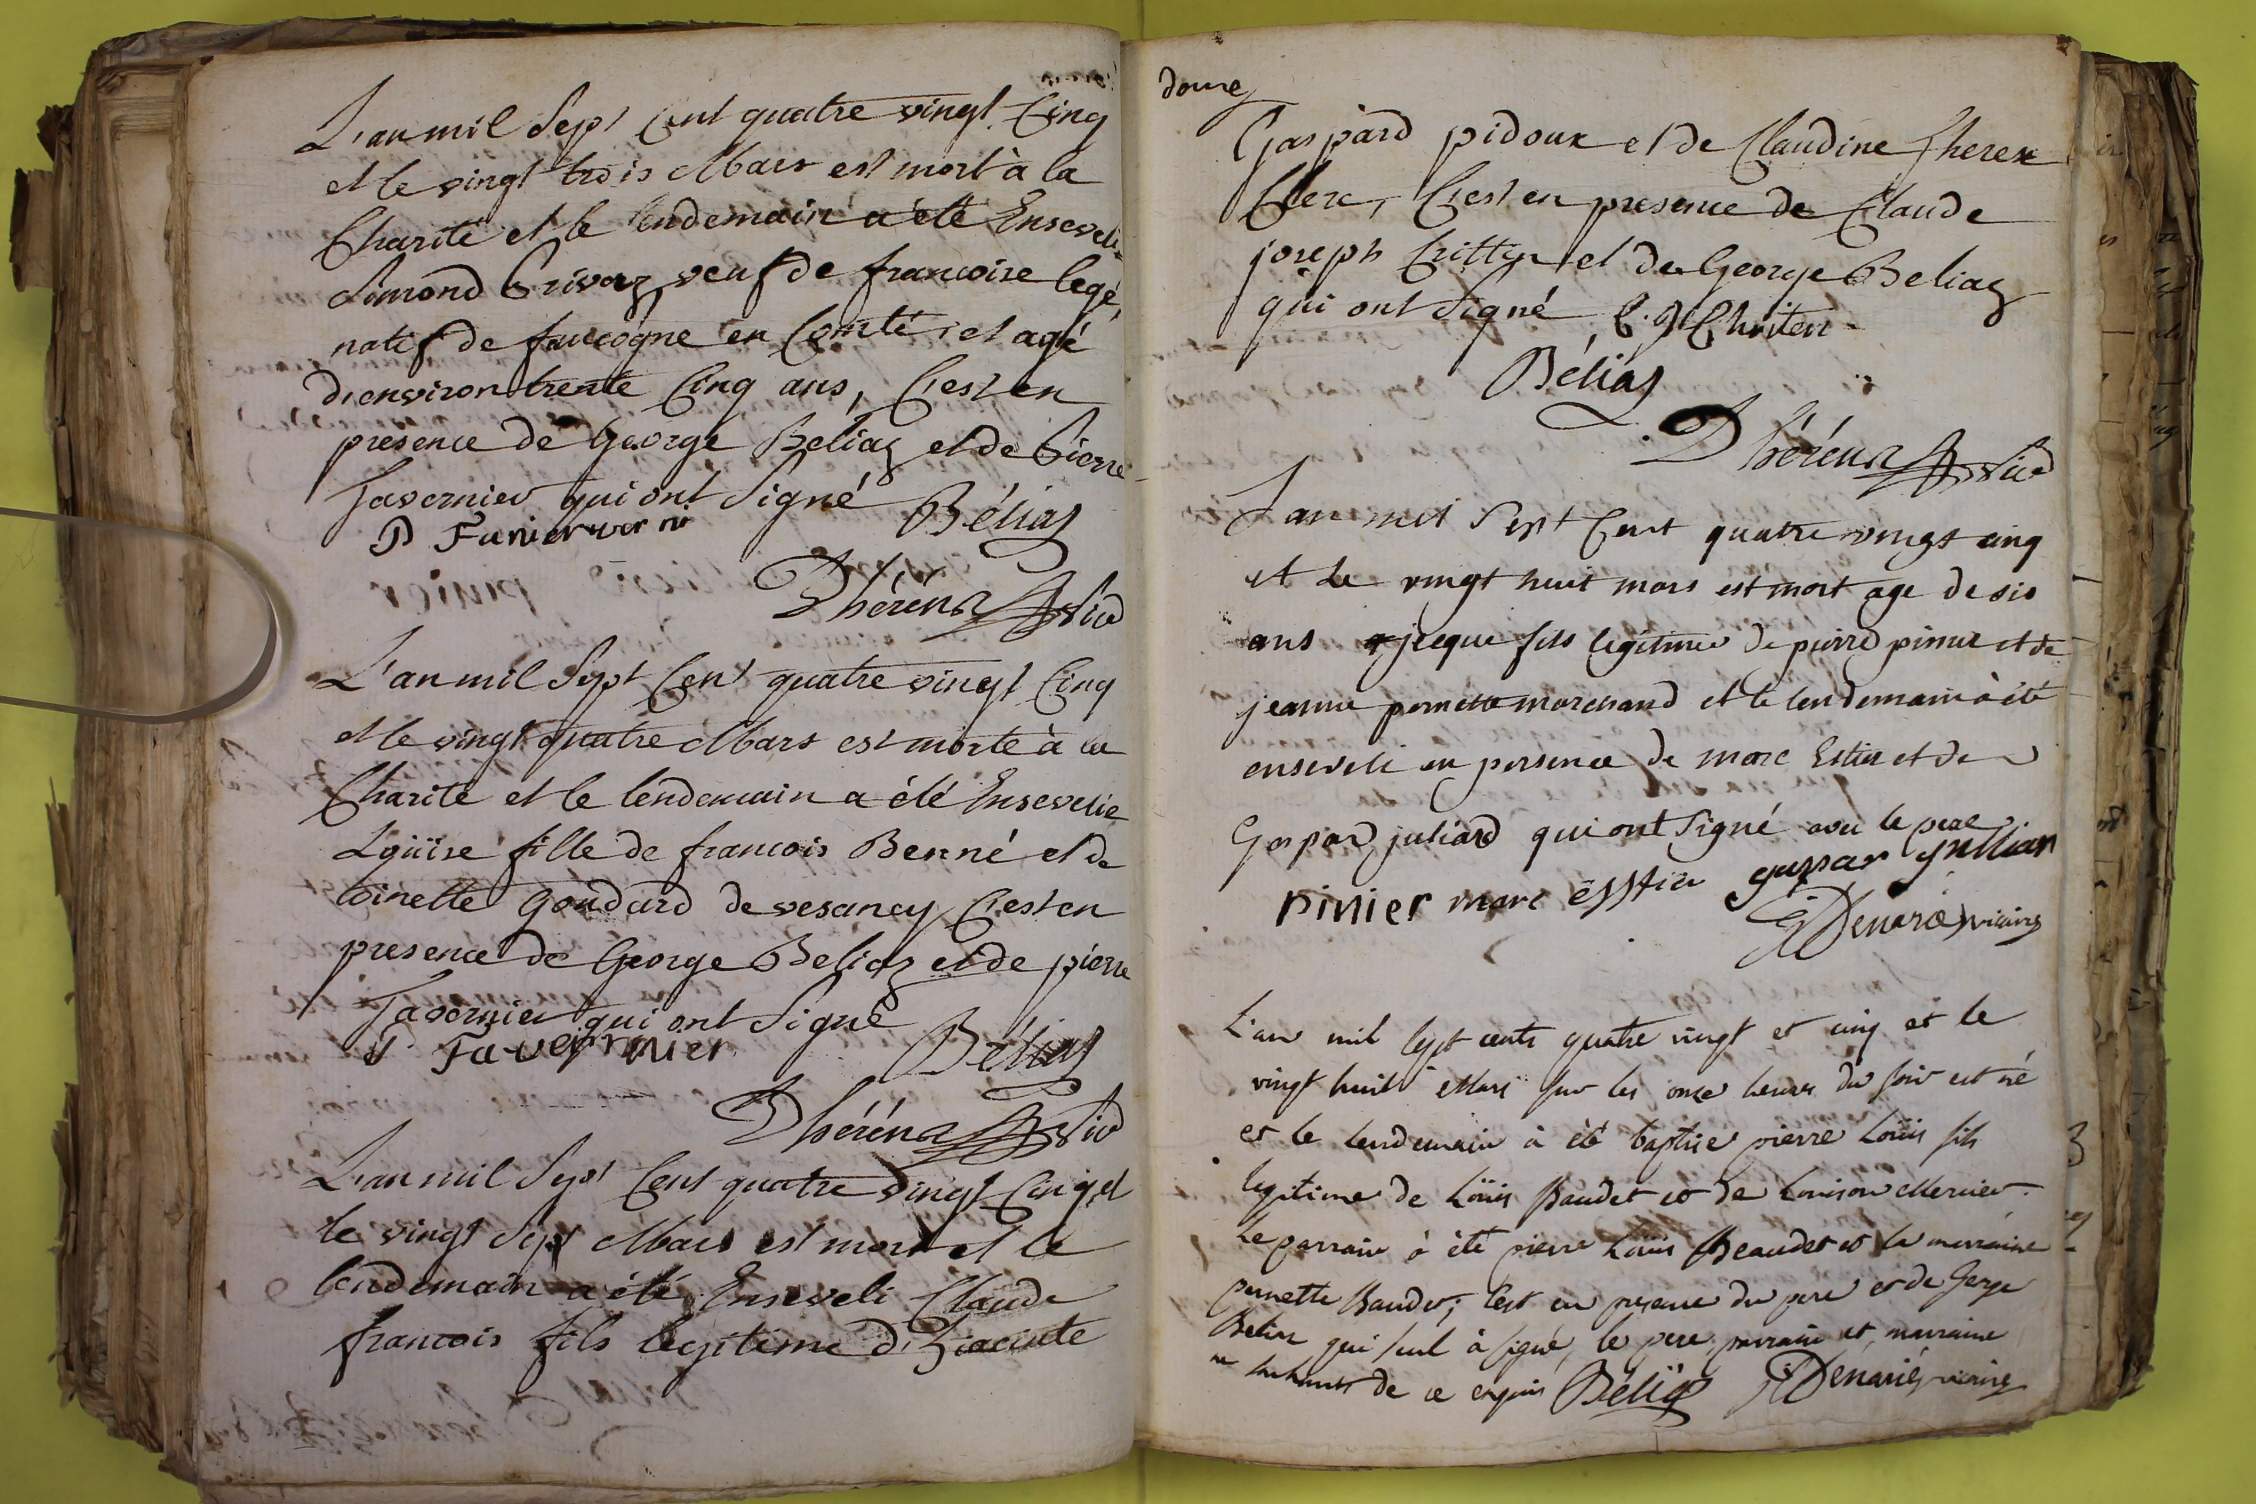 L'an mil Sept Cent quatre vingt Cinq
et le vingt trois Mars est mort à la
Charité et le lendemain a été Enseveli
Simond Grivaz veuf de francoise legé,
natif de faucogne en Comté, et agé
d'environ trente Cinq ans, C'est en
presence de George Beliaz et de Pierre
Tavernier qui ont Signé Béliaz
P
Dhéréns Vic
L'an mil Sept Cent quatre vingt Cinq
et le vingt quatre Mars est morte à la
Charité et le lendemain a été Ensevelie
Loüise fille de francois Benné et de
toinette Goudard de vesancy C'est en
presence de George Beliaz et de pierre
Tavernier qui ont Signé
P Tavernier Béliaz
Dhéréns Vic
L'an mil Sept Cent quatre vingt Cinq et
le vingt Sept Mars est mort et le
lendemain a été Enseveli Claude
francois fils legitime d'hiacinte
Gaspard pidoux et de Claudine
Clerc, C'est en presence de Claude
joseph Critten et de George Beliaz
qui ont Signé C. J. Chriten
Béliaz
Dhéréns Vic
L'an mil Sept Cent quatre vingt cinq
et le vingt huit mars est mort age de six
ans jacque fils legitime de pierre pinier et de
jeanne pernette marchand et le lendemain à été
enseveli en presence de marc Estier et de
Gaspard juliard qui ont Signé avec le pere
pinier marc esstier gaspar jullian
Denarié vicaire
L'an mil sept cents quatre vingt et cinq et le
vingt huit Mars sur les onze heures du soir est né
et le lendemain à été baptise pierre Loüis fils
legitime de Loüis Baudet et de Louison Mercier.
Le parrain à été pierre Loüis Beaudet et la marraine
pernette Baudet; C'est en presence du pere et de George
Beliaz qui seul à signé, le pere, parrain et marraine
de ce enquis Béliaz Denarié vicaire